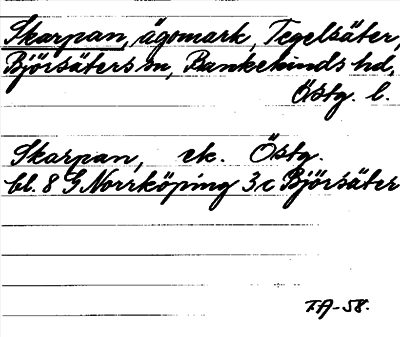 Skarpan, ägomark, Tegelsäter,
Björsäters sn, Bankekinds hd,
Östg. l.
Skarpan, ek. Östg.
bl. 8 G Norrköping 3 c Björsäter
TA-58.